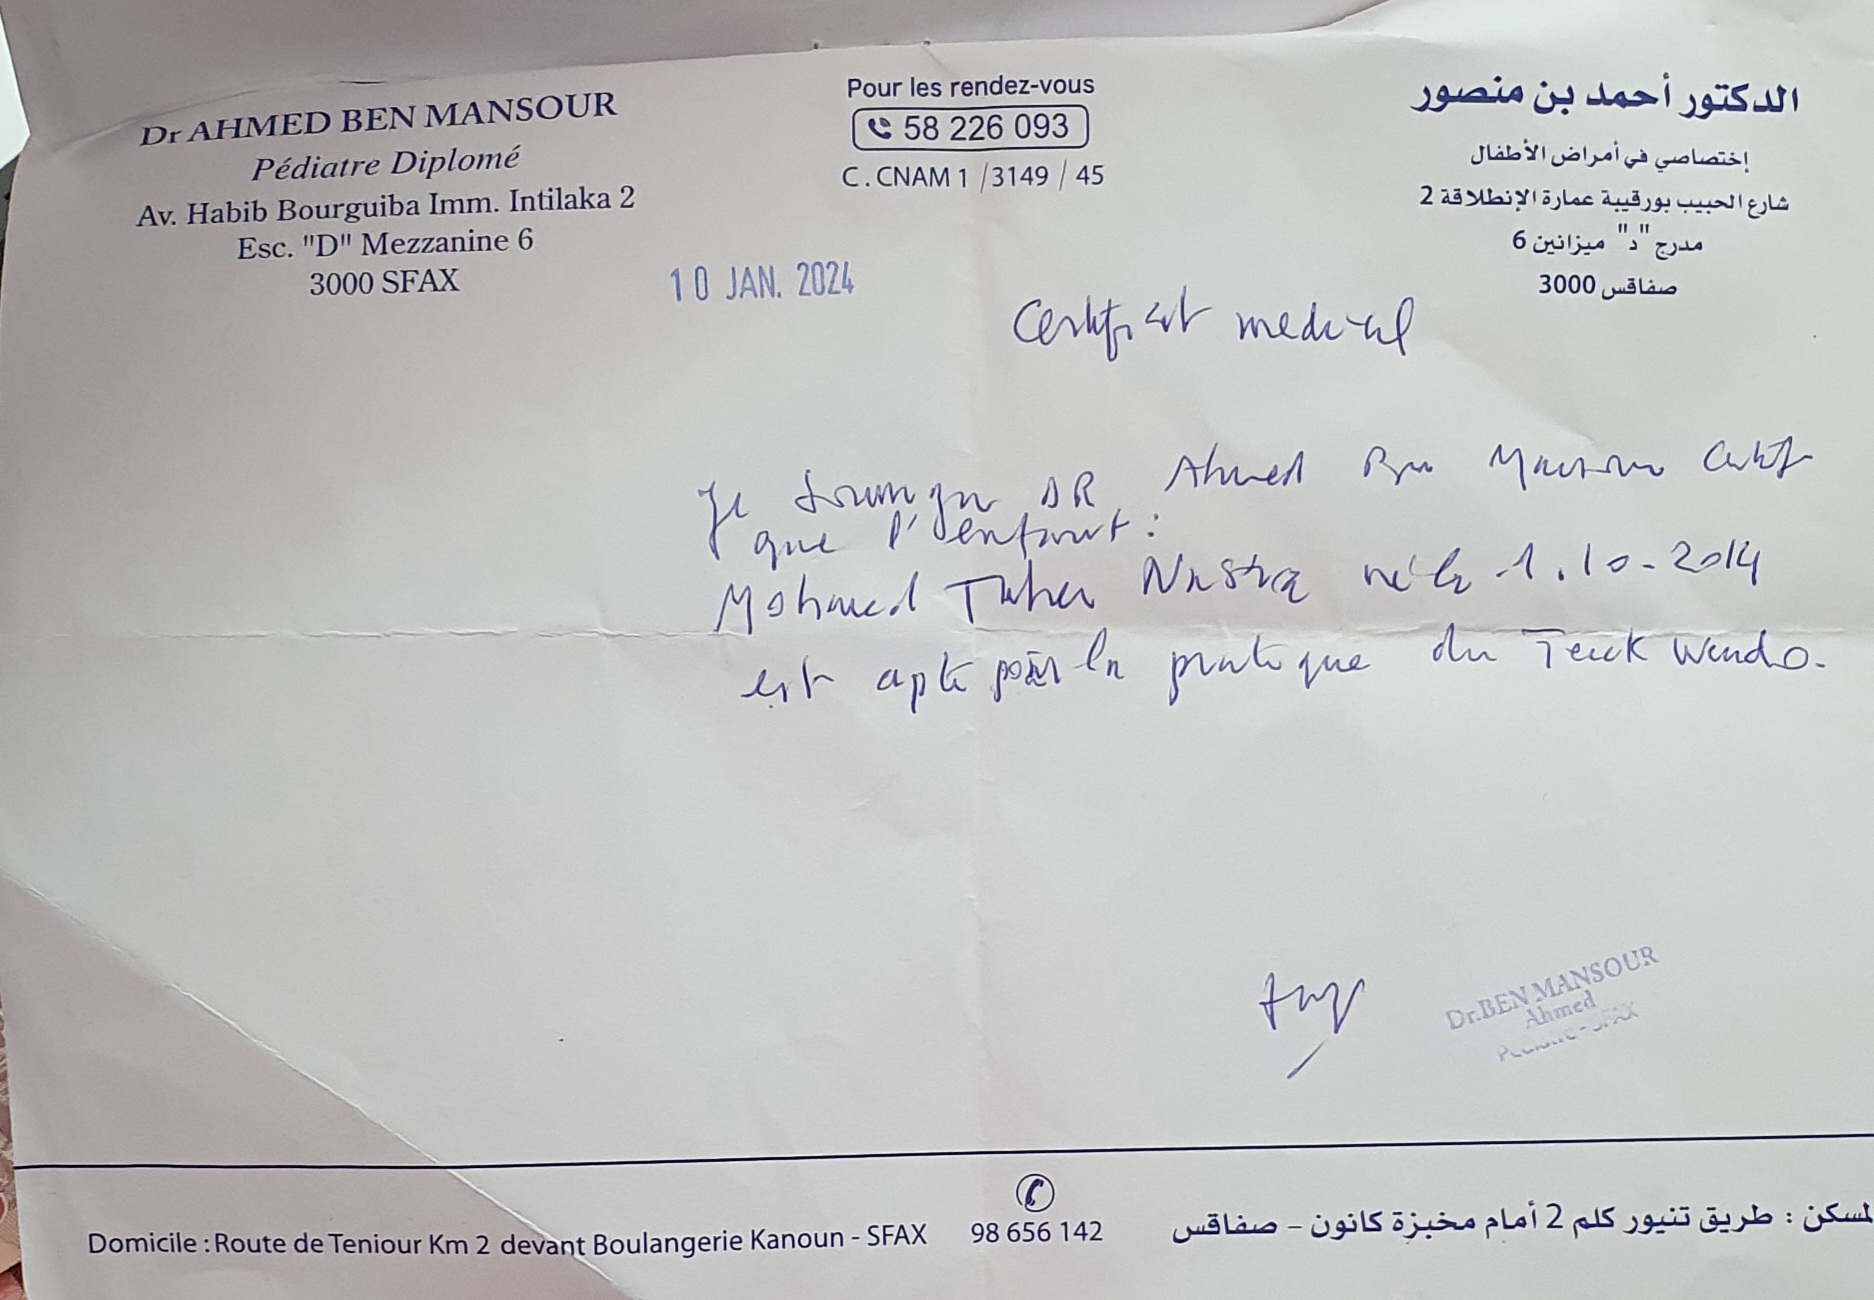 Dr AHMED BEN MANSOUR
Pédiatre Diplomé
Av. Habib Bourguiba Imm. Intilaka 2
Esc. "D" Mezzanine 6
3000 SFAX
Pour les rendez-vous
58 226 093
C. CNAM 1 / 3149 / 45
الدكتور أحمد بن منصور
إختصاصي في أمراض الأطفال
شارع الحبيب بورقيبة عمارة الإنطلاقة 2
مدرج "د" ميزانين 6
صفاقس 3000
10 JAN. 2024
Certificat medical
Je soussigne DR Ahmed Ben Mansour certifie
que l'enfant :
Mohamed Taher né le 1.10-2014
est apte pour la pratique du Teick Wendo.
Dr.BEN MANSOUR
Ahmed
Pédiatre - SFAX
Domicile : Route de Teniour Km 2 devant Boulangerie Kanoun - SFAX
98 656 142
لمسكن : طريق تنيور كلم 2 أمام مخبزة كانون – صفاقس